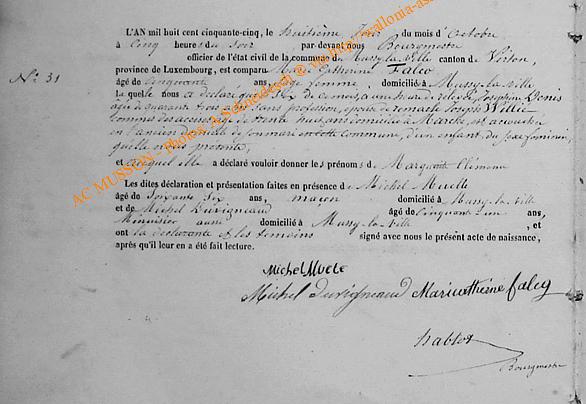 L'AN mil huit cent cinquante-cinq, le huitième Jour du mois d'Octobre
à Cinq heures du Soir par-devant nous Bourgmestre
officier de l'état civil de la commune de Mussy-la-Ville canton de Virton,
N° 31
province de Luxembourg, est comparu Marie Catherine Falcq
âgé de Cinquante ans, sage femme, domicilié à Mussy-la-Ville
Le quelle nous a déclaré que le Six de ce mois, a une heure de relevée, Josephine Denis
agée de quarante trois ans, sans profession, épouse de Joseph Willié
ans domicilié à Marche, est accouchée
en l'ancien domicile de son mari en cette commune, d'un enfant, du sexe feminin,
qu'elle nous présente,
et auquel elle a déclaré vouloir donner les prénoms de Margueritte Clémence
Les dites déclaration et présentation faites en présence de Michel Muelle
âgé de Soixante Six ans, maçon domicilié à Mussy-la-Ville
et de Michel Duvigneaud âgé de Cinquante un ans,
Menuisier aussi domicilié à Mussy-la-Ville, et
ont la déclarante & les témoins signé avec nous le présent acte de naissance,
après qu'il leur en a été fait lecture.
Michel Muele
Michel Duvigneaud Marie cathérine falcq
Bourgmestre
AC MUSSON - Photos A. Schneider